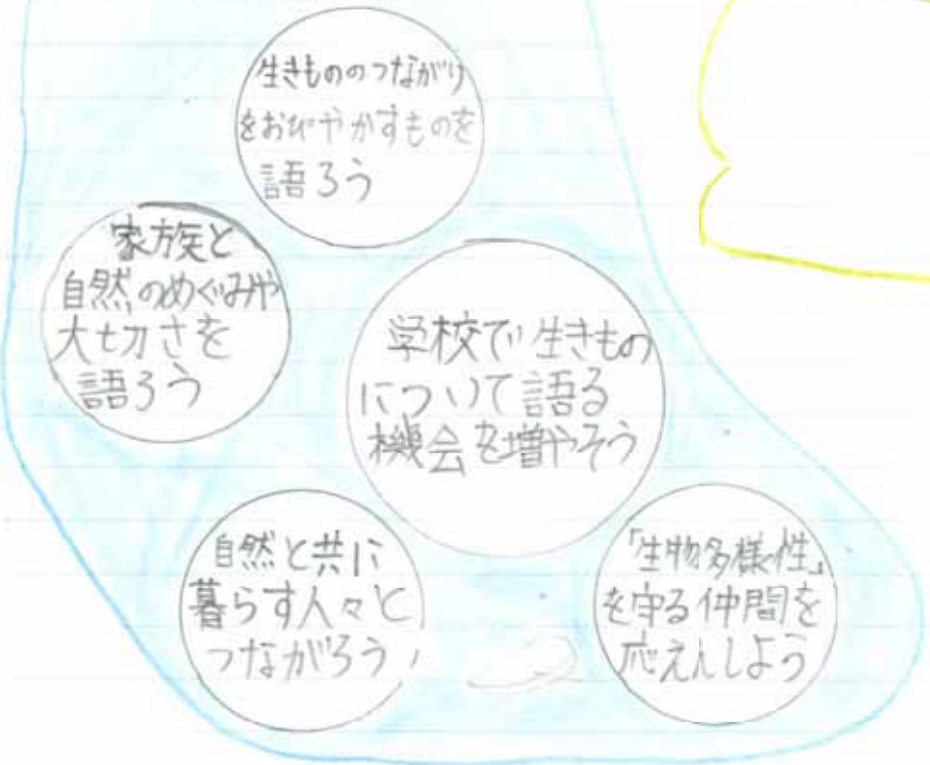 生きもののつながり
をおびやかすものを
語ろう
家族と
自然のめぐみや
大切さを
語ろう
学校で生きもの
について語る
機会を増やそう
自然と共に
暮らす人々と
つながろう
「生物多様性」
を守る仲間を
応えんしよう